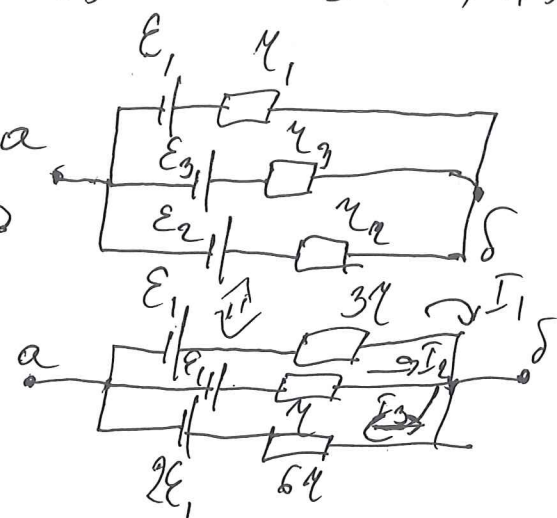 ℰ₁ r₁
a
ℰ₃ r₃
ℰ₂ r₂
δ
ℰ₁ 3r I₁
a ℰ₁ I₂ δ
r I₃
2ℰ₁ 6r